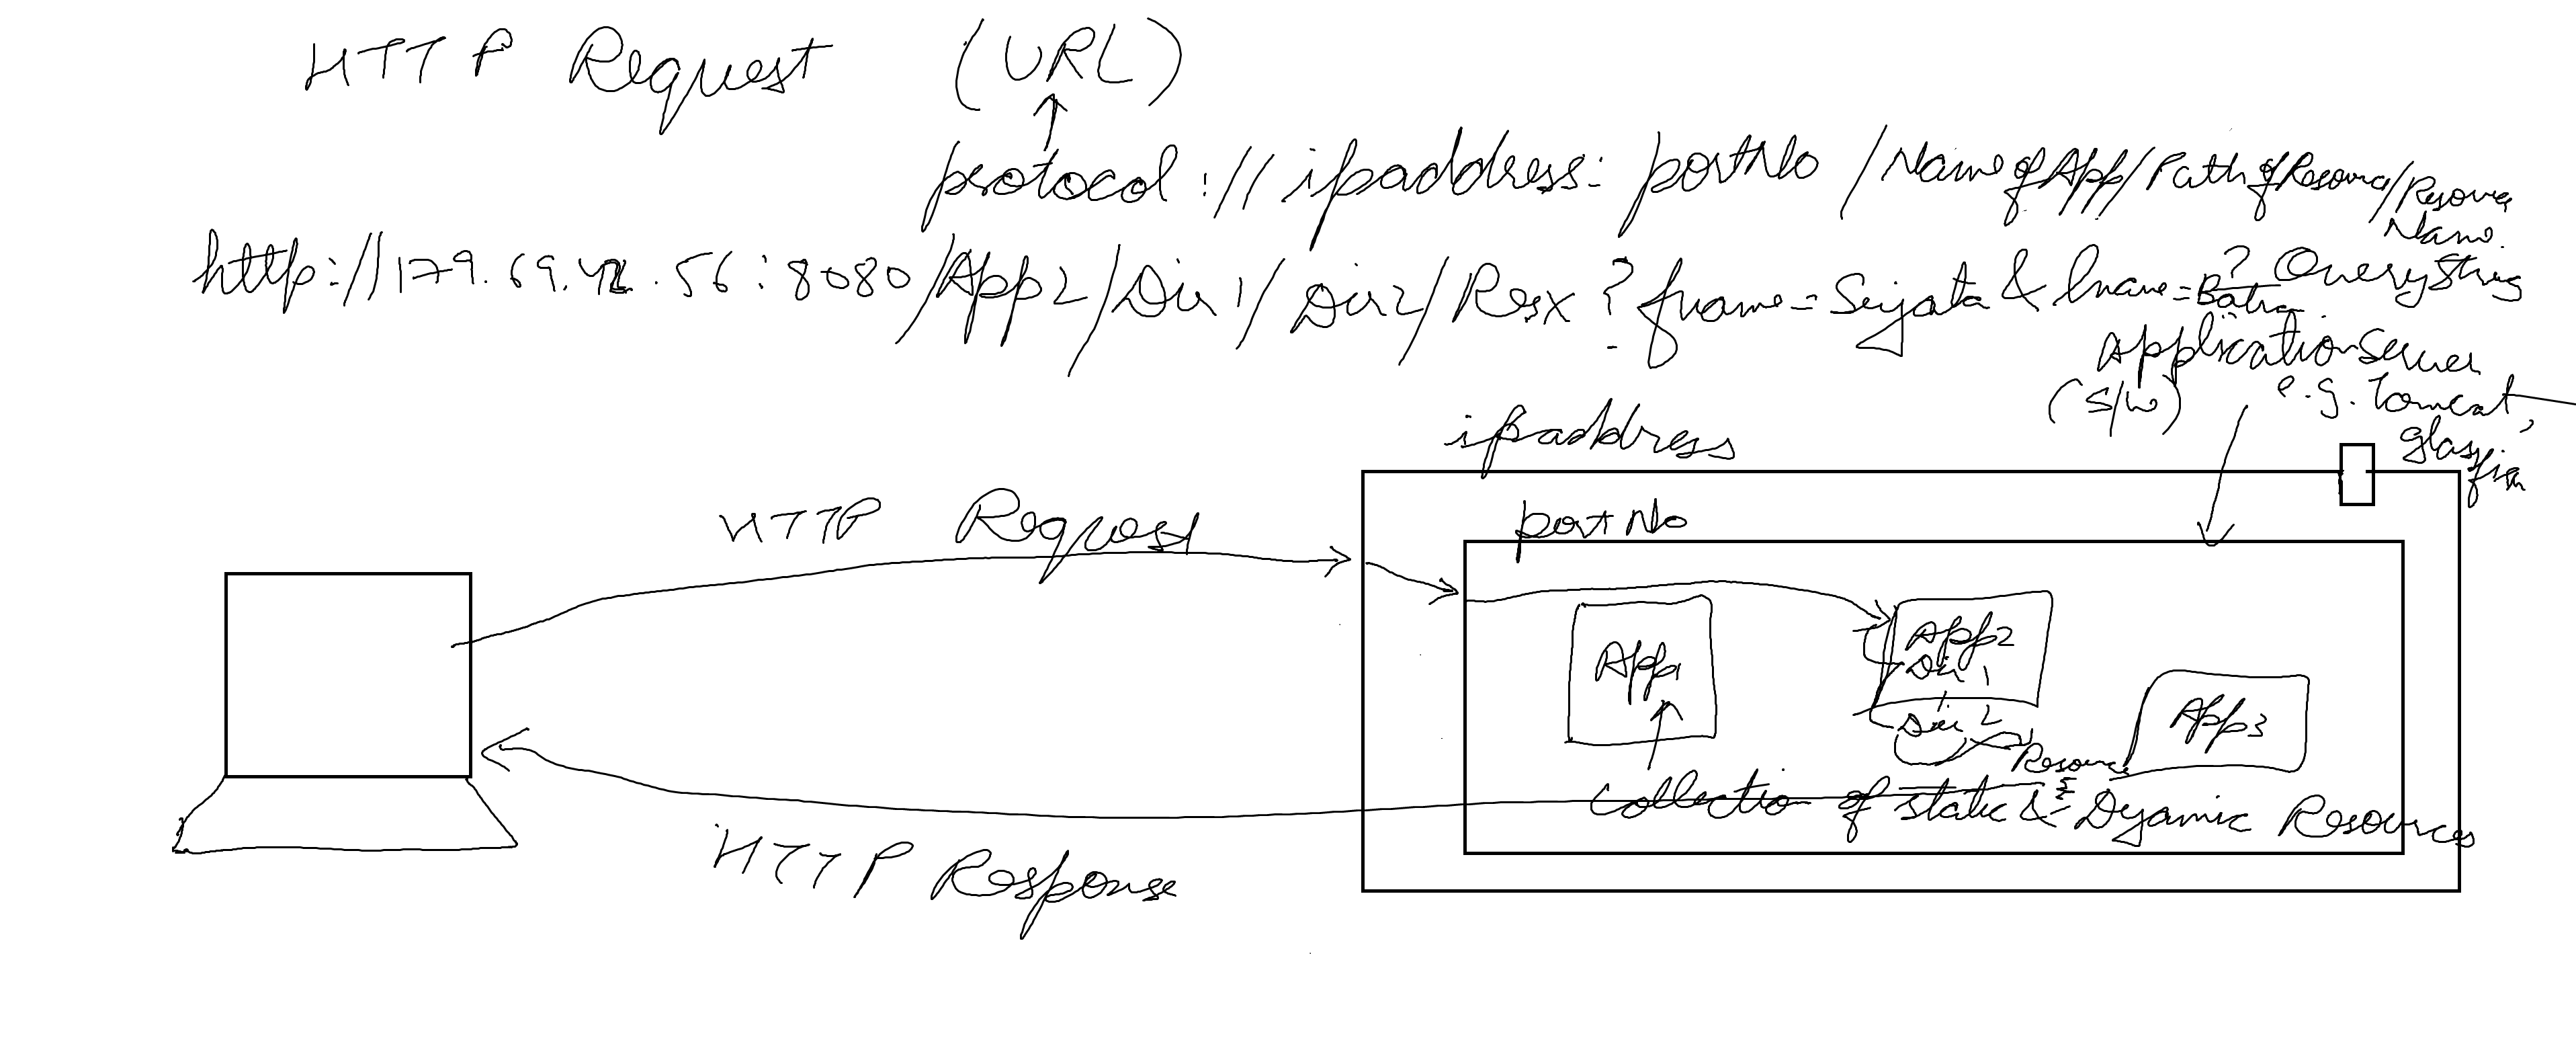 HTTP Request (URL)
protocol :// ipaddress: portNo /Name of App/Path of Resource/Resource
Name.
? Query String
http://179.69.42.56:8080/App2/Dir1/Dir2/Resx?fname=Sujata&lname=Batra
Application Server
(S/W) e.g. Tomcat,
glassfish
ipaddress
HTTP Request
portNo
App1
App2
Dir 1
Dir 2
Resource
App3
Collection of static & Dyamic Resources
HTTP Response